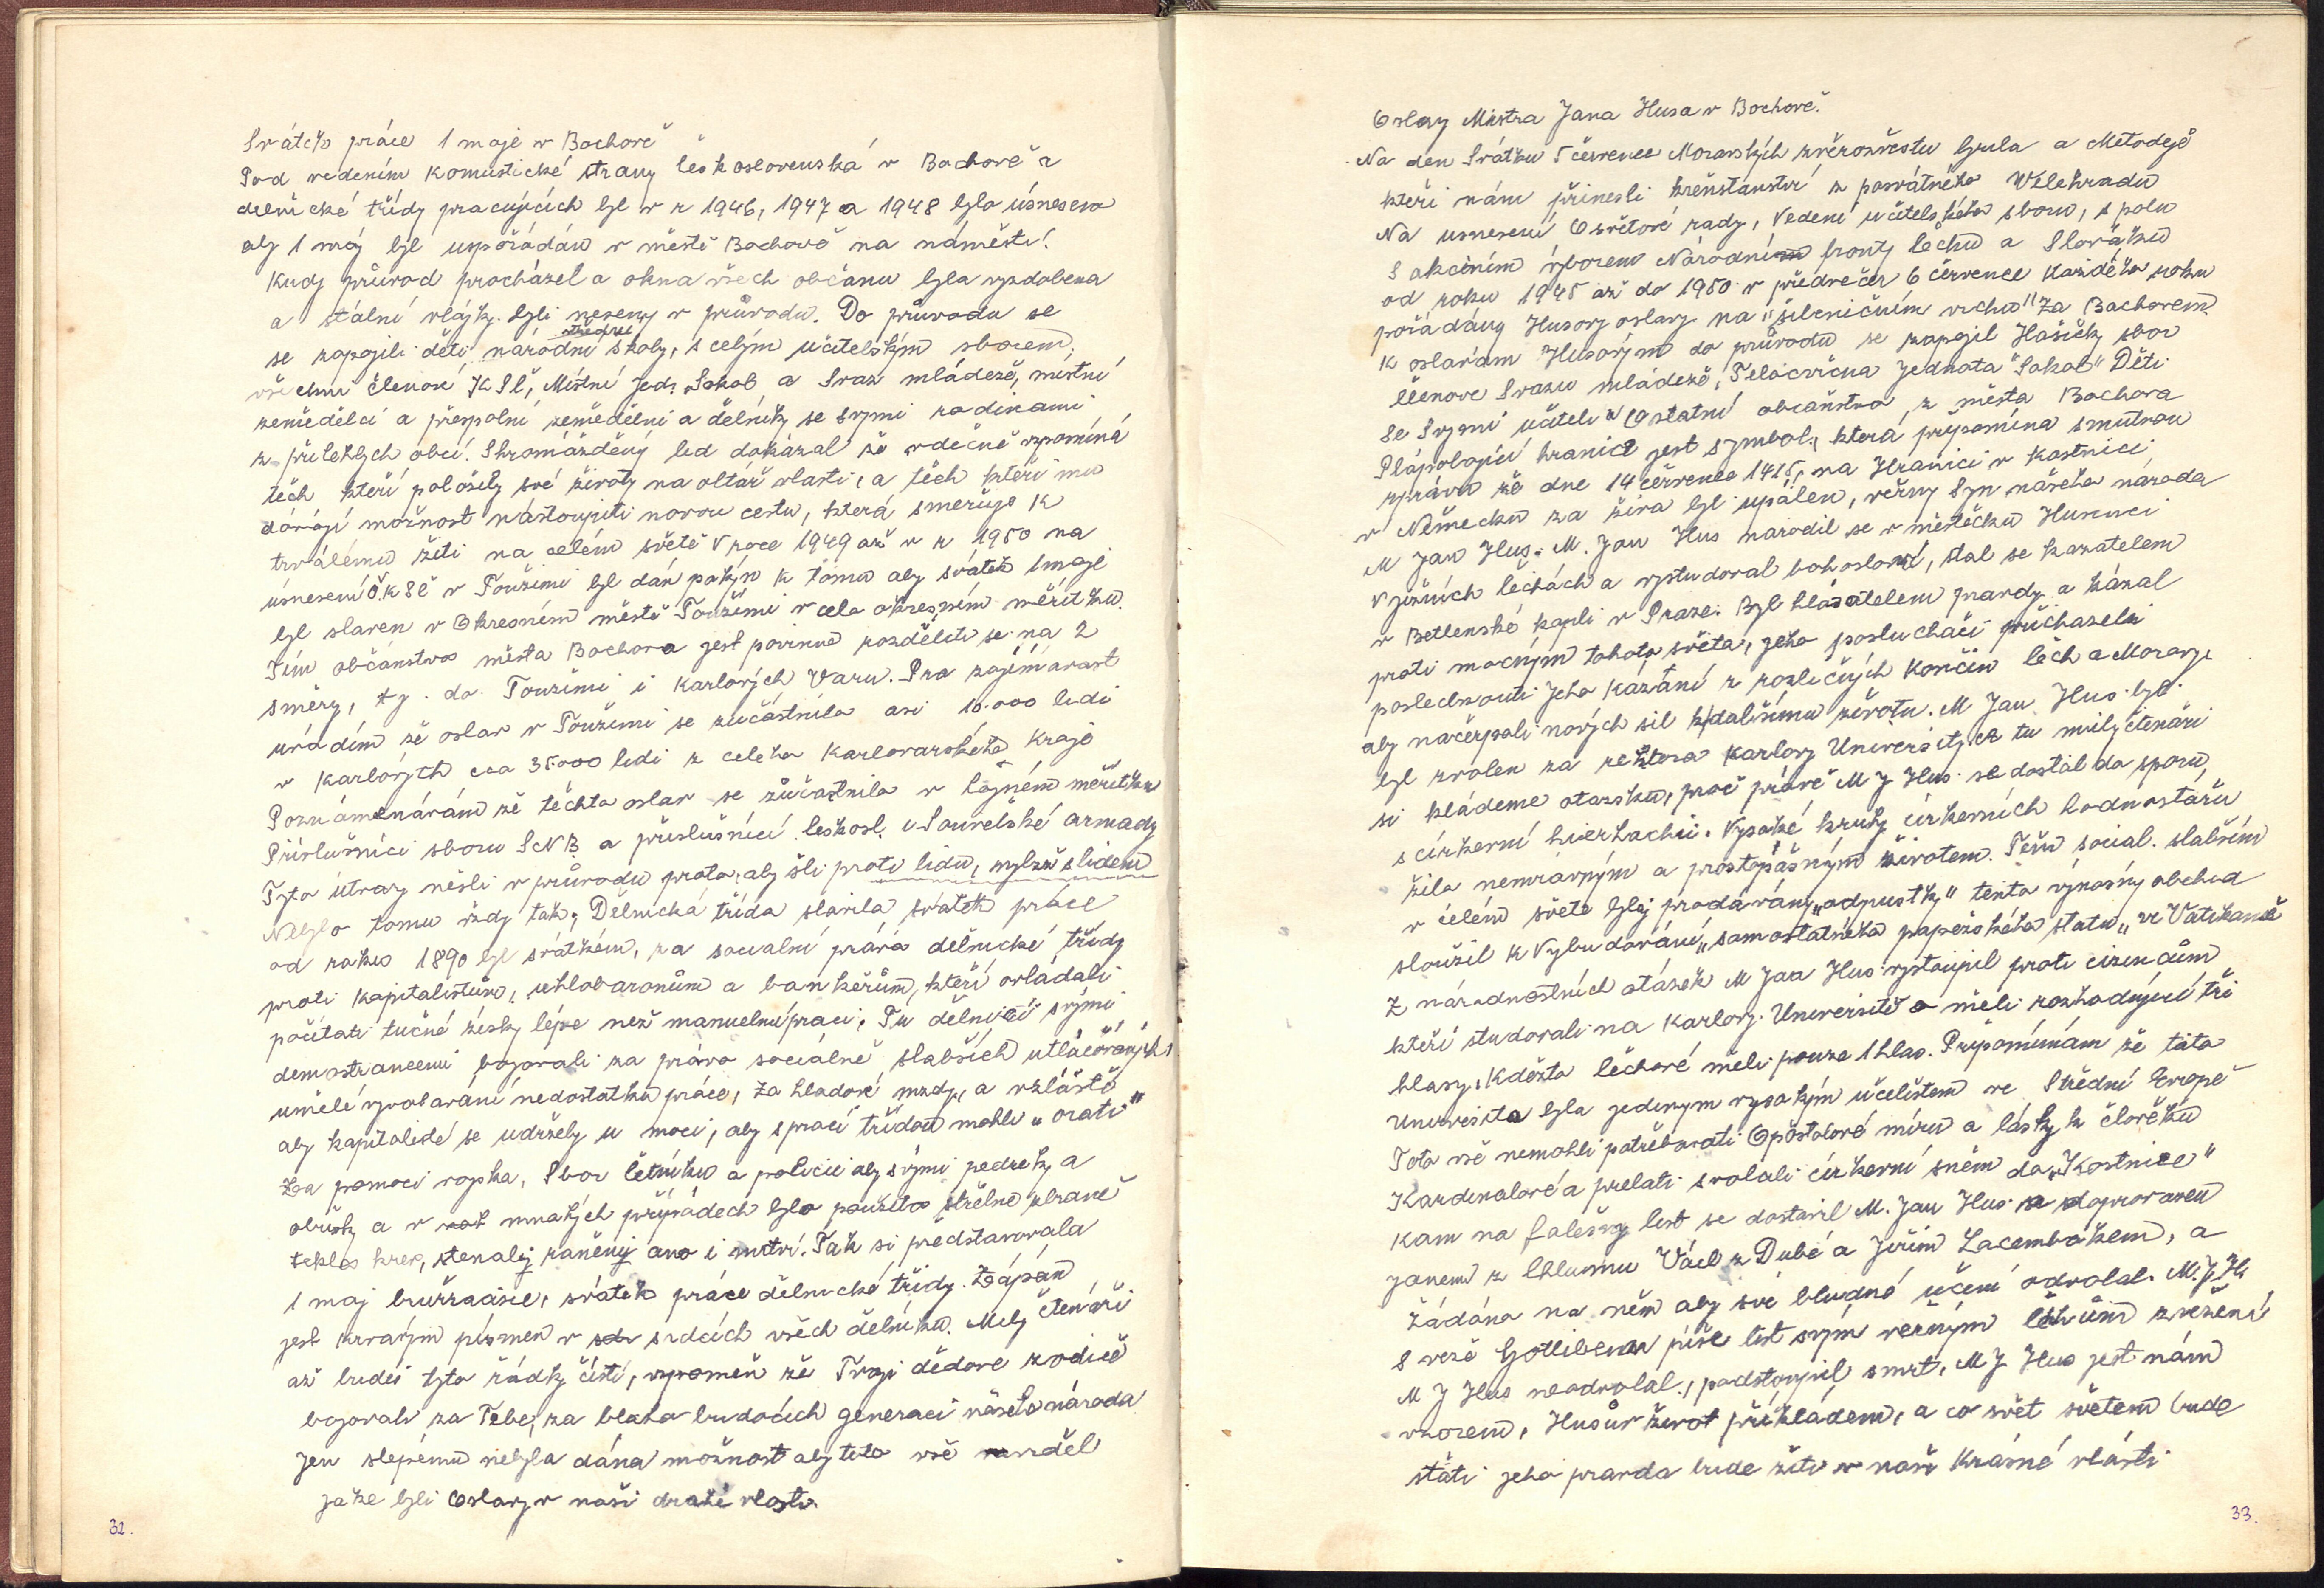 Svátek práce 1 maje v Bochově
Pod vedením komustické strany československá v Bochově a
dělnické třídy pracujících byl v r 1946, 1947 a 1948 bylo usneseno
aby 1 máj byl uspořádán v městě Bochově na náměstí.
Kudy průvod procházel a okna všech občanu byla vyzdobena
a státní vlajky byli neseny v průvodu. Do průvodu se
se zapojili děti národní střední školy, s celým učitelským sborem,
všechni členové KSČ, Místní Jed. Sokol a Svaz mládeže, místní
zemědělci a přespolní zemědělní a dělníky se svými rodinami
z přilehlych obcí. Shromážděný lid dokázal že vděčně vzpomíná
těch kteří položily své životy na oltář vlasti, a těch kteří mu
dávájí možnost nástoupiti novou cestu, která směřuje k
trválému žiti na celém světě V roce 1949 až v r 1950 na
úsnesení O.KSČ v Toužimi byl dán pokýn k tomu aby svátek 1 maje
byl slaven v Okresním městě Toužimi v celo okresním měřítku.
Tím občanstvo města Bochova jest povinno rozděliti se na 2
směry, t j. do Toužimi i Karlových Varu. Pro zajímavost
uvádím že oslav v Toužimi se zúčástnilo asi 10.000 lidi
v Karlových cca 35000 lidi z celeho Karlovarského Kraje
Poznámenávám že těchto oslav se zůčastnila v lojném měřítku
Příslušníci sboru SNB a příslušnící českosl. i Sovětské armady
Tyto útvary nešli v průvodu proto, aby šli proti lidu, nýbrž s lidem
Nebylo tomu vždy tak, Dělnická třída slavila svátek práce
od roku 1890 byl svátkem, za sociální práva dělnické třídy
proti kapitalistům, uhlobaronům a bankéřům, kteří ovládali
počítati tučné zisky lépe než manuelní praci. Tu dělnící svými
demostraneemi bojovali za práva sociálně slabších utláčovaných
umělé vyvolávání nedostatku práce, za hladové mzdy, a vzláště
aby kapitalisté se udržely u moci, aby s prací třídou mohli „orati"
Za pomoci vojska, Sbor četníku a policie aby svými pedreky a
obušky a v mnahých případech bylo použito střelne zbraně
tekla krev, stenaly raněný ano i mrtví. Tak si představovala
1 maj buržoasie, svátek práce dělnické třídy. Zápán
jest krvavým písmen v srdcích všech dělníku. Milý čtenáři
až budeš tyto řádky čisti, vzpomeň že Tvoji dědove rodiče
bojovali za Tebe, za blaho budoucích generací našeho národa
Jen slepému nebyla dána možnost aby toto vše viděl
jake byli Oslavy v naši drahé vlasti.
32.
Oslavy Mistra Jana Husa v Bochově.
Na den Svátku 5 července Moravských zvěrozvěstu Cyrila a Metoděje
kteři nám přinesli křesťanství z posvátného Velehradu
Na usnesení Osvětové rady, Vedení učitelského sboru, s polu
S akčním výborem Národní fronty Čechu a Slováku
od roku 1945 až do 1950 v předvečer 6 července každého roku
pořádány Husovy oslavy na „šibeničním vrchu" za Bochovem
K oslavám Husovým do průvodu se zapojil Hasičky sbor
členove Svazu mládeže, Tělocvična Jednota "Sokol" Děti
Se Svymi učiteli a Ostatní občanstvo z města Bochova
Plápolojící hranice jest symbol, která připomíná smutnou
zprávu že dne 14 července 1415, na Hranici v Kostnici
v Německu za živa byl upálen, věrny Syn našeho národa
M Jan Hus. M. Jan Hus narodil se v městěčku Husinci
v jižních Čechách a vystudoval bohosloví, stal se kazatelem
v Betlenské kapli v Praze. Byl hlásatelem pravdy a kázal
proti mocným tohoto světa, jeho posluchači přicházeli
poslechnouti jeho kázání z rozličných končin Čech a Moravy
aby načerpali nových sil k dalšímu životu. M Jan Hus byl
byl zvolen za rektora Karlovy University a tu milý čtenáři
si kládeme otazsku, proč právě M J Hus se dostal do sporu,
s církevní hierhachii. Vysoké kruhy církevních hodnostářu
žila nemravným a prostopášným životem. Těm social. slabším
v celém světe byly prodávány „odpustky" tento výnosný obchod
sloužil k Vybudování „samostatneho papežského statu„ ve Vatikaně
Z národnostních otázek M Jan Hus vystoupil proti cizencům
kteří studovali na Karlovy. Universitě a měli rozhodující tři
hlasy, Kděžto Čechové měli pouze 1 hlas. Připomínám že tato
Universita byla jediným vysokým učelištem ve Střední Evropě
Toto vše nemohli potřebovati Opoštolové míru a lásky k člověku
Kardinalové a prelati svolali církevní sněm do „Kostnice"
kam na falešny list se dostavil M. Jan Hus doprovazen
Janem z Chlumu Václ z Dubé a Jiřím Lacembokem, a
žádána na něm aby své bludné učení odvolal. M. J. H
S věže Gotlieben píše list svým věrným Čechům z vězení
M J Hus neodvolal, podstoupil smrt, M J Hus jest nám
vzorem, Husův život příkladem, a co svět světem bude
státi jeho pravda bude žíti v naší Krásné vlásti
33.